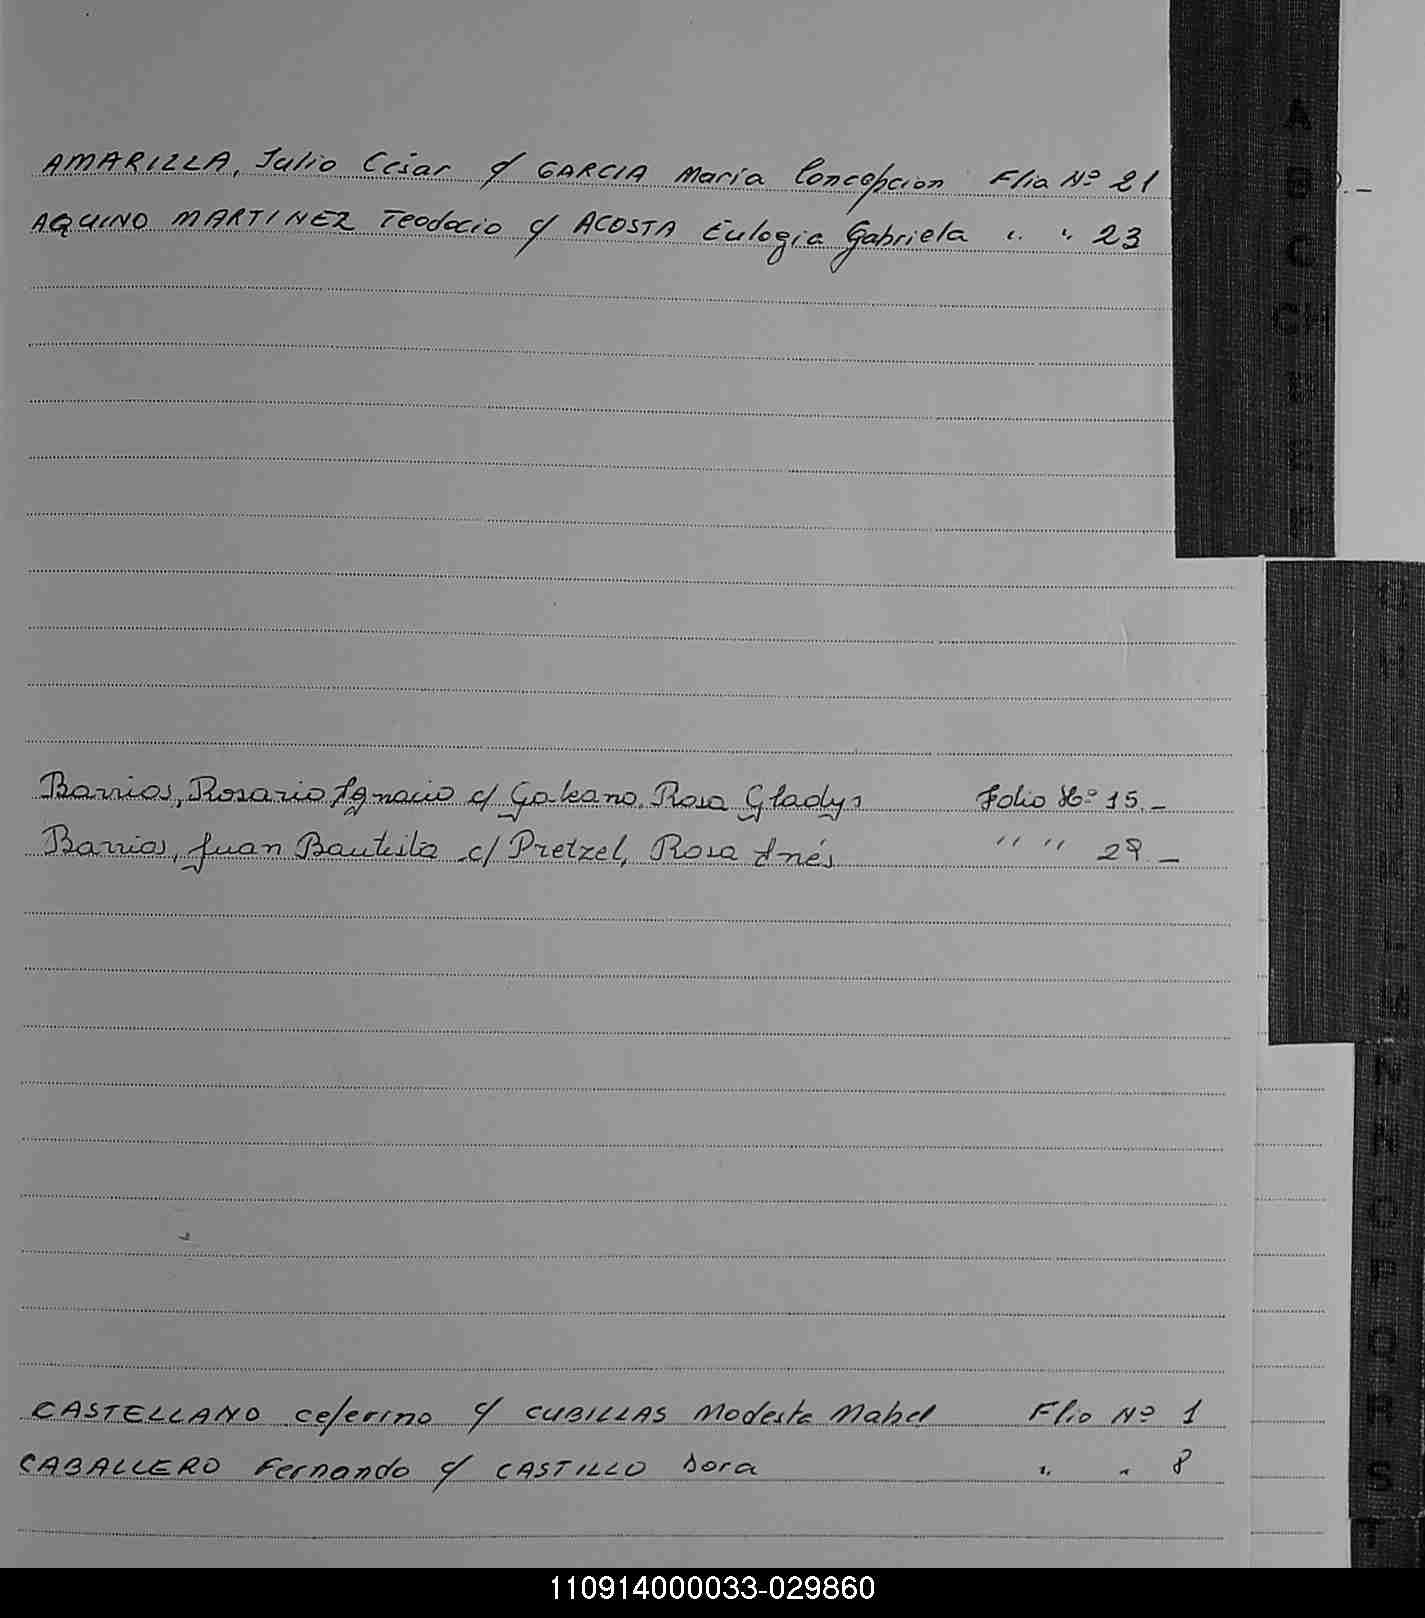 AMARILLA, Julio César c/ GARCIA María Concepcion Flio Nº 21
AQUINO MARTINEZ Teodocio c/ ACOSTA Eulogia Gabriela " " 23
Barrios, Rosario Ignacio c/ Galeano, Rosa Gladys Folio Nº 15.-
Barrios, Juan Bautista c/ Pretzel, Rosa Inés " " 29.-
CASTELLANO Ceferino c/ CUBILLAS Modesta Mabel Flio Nº 1
CABALLERO Fernando c/ CASTILLO Dora " " 8
A
B
C
CH
D
E
F
G
H
I
J
K
L
M
N
Ñ
O
P
Q
R
S
T
110914000033-029860